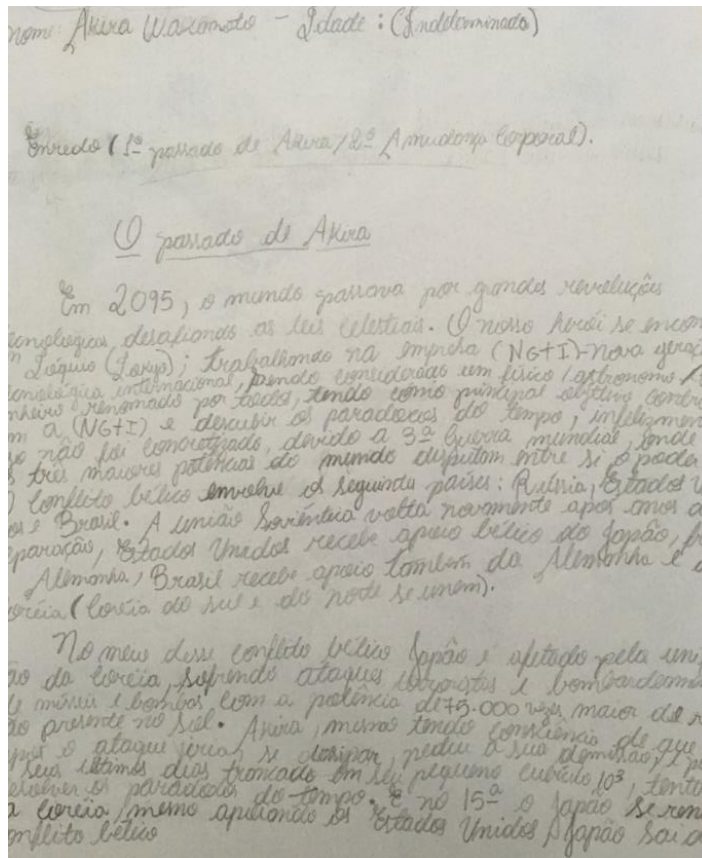 nome: Akira Wakamoto - Idade: (Indeterminada)
Enredo (1º passado de Akira/2º A mudança Corporal).
O passado de Akira
Em 2095, o mundo passava por grandes revoluções
tecnológicas desafiando as leis celestiais. O nosso herói se encon
Tóquio (Tokyo); trabalhando na empresa (NG+I)-Nova geraç
tecnológica internacional, sendo considerado um físico/astronomo/
nheiro renomado por todos, tendo como principal objetivo contr
m a (NG+I) e descubrir os paradoxos do tempo, infelizmen
não foi concretizado, devido a 3ª Guerra mundial, onde
s três maiores potências do mundo disputam entre si o poder
O conflito bélico envolve os seguinte países: Rússia, Estados U
os e Brasil. A união Soviéntica volta novamente após anos d
eparação, Estados Unidos recebe apoio bélico do Japão,
Alemanha, Brasil recebe apoio também da Alemanha e d
oréia (Coréia do sul e do norte se unem).
No meio desse conflito bélico Japão é afetado pela uni
ão da Coréia, sofrendo ataques e bombardeame
e mísseis e bombas com a potência de 75.000 vezes maior do
ão presente no Sol. Akira, mesmo tendo consciência de que
após o ataque iria se dissipar, pediu a sua demissão,
seus últimos dias trancado em seu pequeno cubículo 10³, tent
esolver os paradoxos do tempo. E no 15º o Japão se ren
a Coréia, mesmo apoiando os Estados Unidos, Japão sai d
onflito bélico